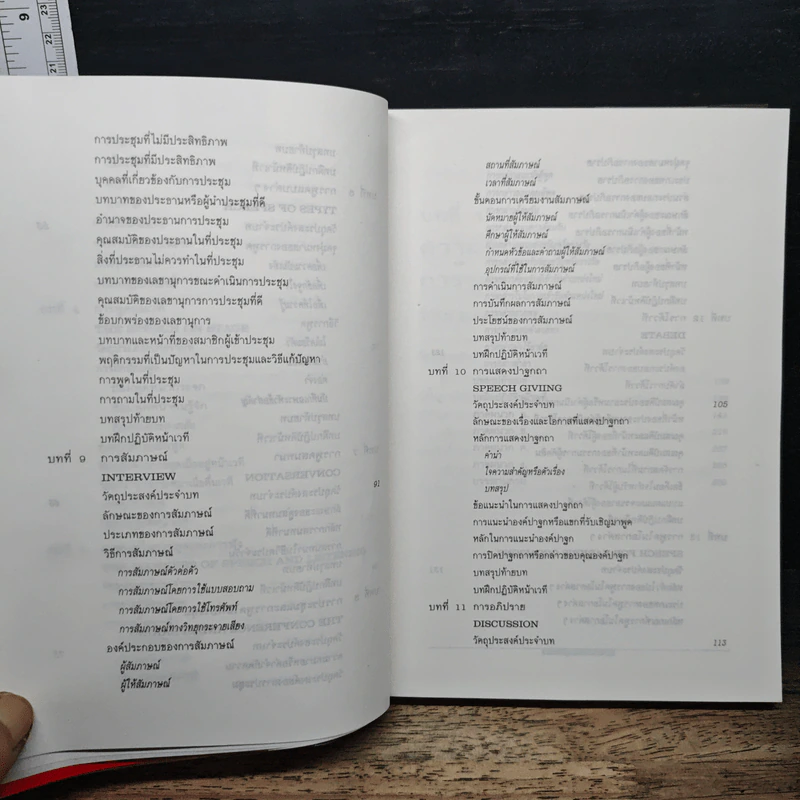 9
23
22
21
การประชุมที่ไม่มีประสิทธิภาพ
การประชุมที่มีประสิทธิภาพ
บุคคลที่เกี่ยวข้องกับการประชุม
บทบาทของประธานหรือผู้นำประชุมที่ดี
อำนาจของประธานการประชุม
คุณสมบัติของประธานในที่ประชุม
สิ่งที่ประธานไม่ควรทำในที่ประชุม
บทบาทของเลขานุการขณะดำเนินการประชุม
คุณสมบัติของเลขานุการการประชุมที่ดี
ข้อบกพร่องของเลขานุการ
บทบาทและหน้าที่ของสมาชิกผู้เข้าประชุม
พฤติกรรมที่เป็นปัญหาในการประชุมและวิธีแก้ปัญหา
การพูดในที่ประชุม
การถามในที่ประชุม
บทสรุปท้ายบท
บทฝึกปฏิบัติหน้าเวที
บทที่ 9 การสัมภาษณ์
INTERVIEW
วัตถุประสงค์ประจำบท 91
ลักษณะของการสัมภาษณ์
ประเภทของการสัมภาษณ์
วิธีการสัมภาษณ์
การสัมภาษณ์ตัวต่อตัว
การสัมภาษณ์โดยการใช้แบบสอบถาม
การสัมภาษณ์โดยการใช้โทรศัพท์
การสัมภาษณ์ทางวิทยุกระจายเสียง
องค์ประกอบของการสัมภาษณ์
ผู้สัมภาษณ์
ผู้ให้สัมภาษณ์
สถานที่สัมภาษณ์
เวลาที่สัมภาษณ์
ขั้นตอนการเตรียมงานสัมภาษณ์
นัดหมายผู้ให้สัมภาษณ์
ศึกษาผู้ให้สัมภาษณ์
กำหนดหัวข้อและคำถามผู้ให้สัมภาษณ์
อุปกรณ์ที่ใช้ในการสัมภาษณ์
การดำเนินการสัมภาษณ์
การบันทึกผลการสัมภาษณ์
ประโยชน์ของการสัมภาษณ์
บทสรุปท้ายบท
บทฝึกปฏิบัติหน้าเวที
บทที่ 10 การแสดงปาฐกถา
SPEECH GIVIING
วัตถุประสงค์ประจำบท 105
ลักษณะของเรื่องและโอกาสที่แสดงปาฐกถา
หลักการแสดงปาฐกถา
คำนำ
ใจความสำคัญหรือตัวเรื่อง
บทสรุป
ข้อแนะนำในการแสดงปาฐกถา
การแนะนำองค์ปาฐกหรือแขกที่รับเชิญมาพูด
หลักในการแนะนำองค์ปาฐก
การปิดปาฐกถาหรือกล่าวขอบคุณองค์ปาฐก
บทสรุปท้ายบท
บทฝึกปฏิบัติหน้าเวที
บทที่ 11 การอภิปราย
DISCUSSION
วัตถุประสงค์ประจำบท 113